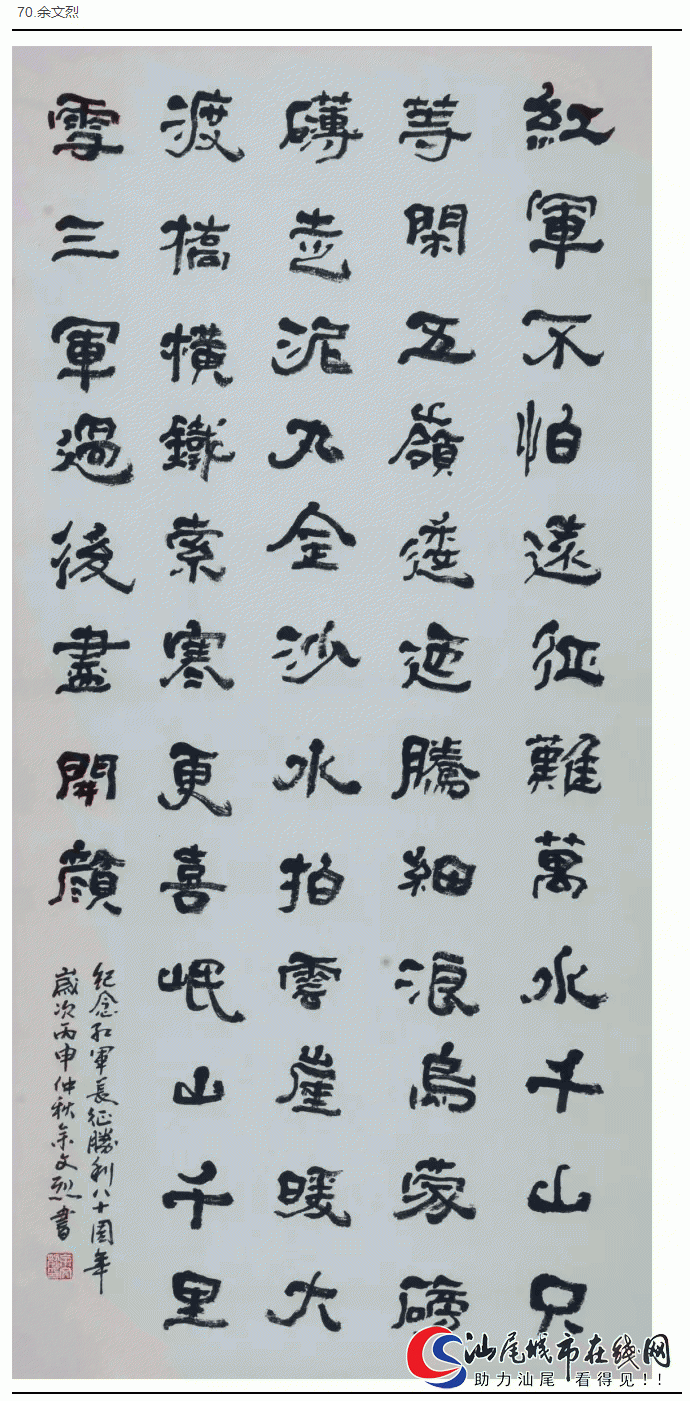 70.余文烈
紅軍不怕遠征難萬水千山只
等閑五嶺逶迤騰細浪烏蒙磅
礴走泥丸金沙水拍雲崖暖大
渡橋橫鐵索寒更喜岷山千里
雪三軍過後盡開顏
紀念紅軍長征勝利八十周年
歲次丙申仲秋余文烈書
汕尾城市在线网
助力汕尾 看得见!!